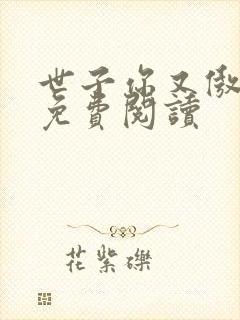 世子你又傲
免費閱讀
花紫礫